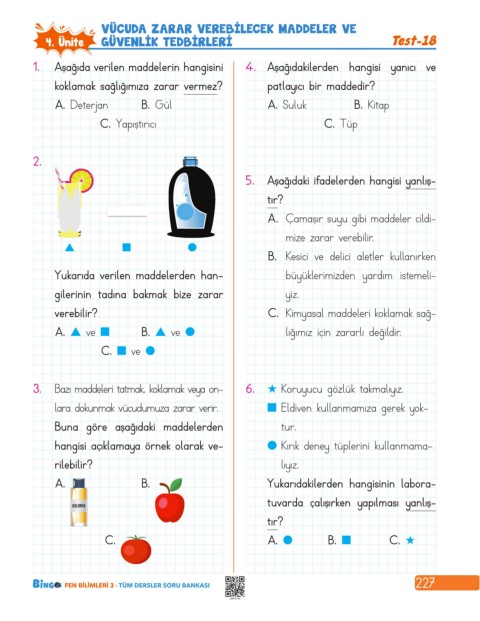 4. Ünite
VÜCUDA ZARAR VEREBİLECEK MADDELER VE
GÜVENLİK TEDBİRLERİ
Test-18
1. Aşağıda verilen maddelerin hangisini
koklamak sağlığımıza zarar vermez?
A. Deterjan B. Gül
C. Yapıştırıcı
2.
Yukarıda verilen maddelerden han-
gilerinin tadına bakmak bize zarar
verebilir?
A. ▲ ve ■ B. ▲ ve ●
C. ■ ve ●
3. Bazı maddeleri tatmak, koklamak veya on-
lara dokunmak vücudumuza zarar verir.
Buna göre aşağıdaki maddelerden
hangisi açıklamaya örnek olarak ve-
rilebilir?
A. B.
KOLONYA
C.
4. Aşağıdakilerden hangisi yanıcı ve
patlayıcı bir maddedir?
A. Suluk B. Kitap
C. Tüp
5. Aşağıdaki ifadelerden hangisi yanlış-
tır?
A. Çamaşır suyu gibi maddeler cildi-
mize zarar verebilir.
B. Kesici ve delici aletler kullanırken
büyüklerimizden yardım istemeli-
yiz.
C. Kimyasal maddeleri koklamak sağ-
lığımız için zararlı değildir.
6. ★ Koruyucu gözlük takmalıyız.
■ Eldiven kullanmamıza gerek yok-
tur.
● Kırık deney tüplerini kullanmama-
lıyız.
Yukarıdakilerden hangisinin labora-
tuvarda çalışırken yapılması yanlış-
tır?
A. ● B. ■ C. ★
BİNGO FEN BİLİMLERİ 3 - TÜM DERSLER SORU BANKASI
227